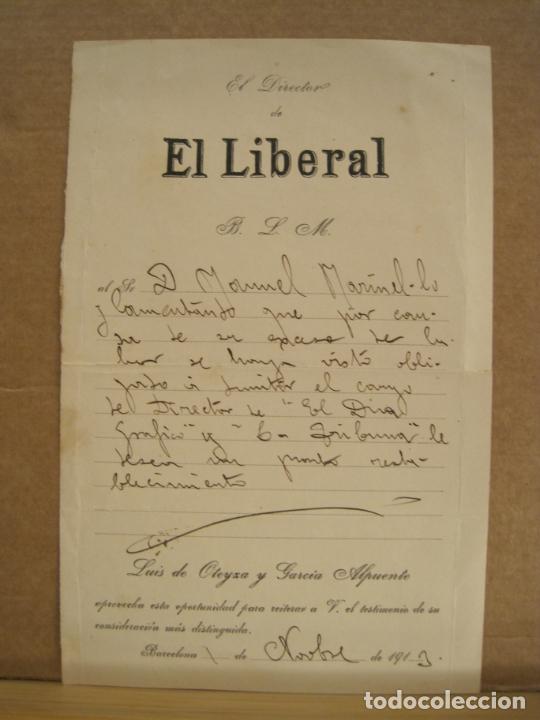 El Director
de
El Liberal
B. L. M.
al Sr. D Manuel Marinel-lo
y lamentándo que por cau-
sa de su exceso de la-
bor se haya visto obli-
gado á dimitir el cargo
de Director de "El Dia
Grafico" y "La Tribuna" le
desea un pronto resta-
blecimiento
Luis de Oteyza y García Alpuente
aprovecha esta oportunidad para reiterar a V. el testimonio de su
consideración más distinguida.
Barcelona 1 de Novbre de 1913.
todocoleccion
todocoleccion.net